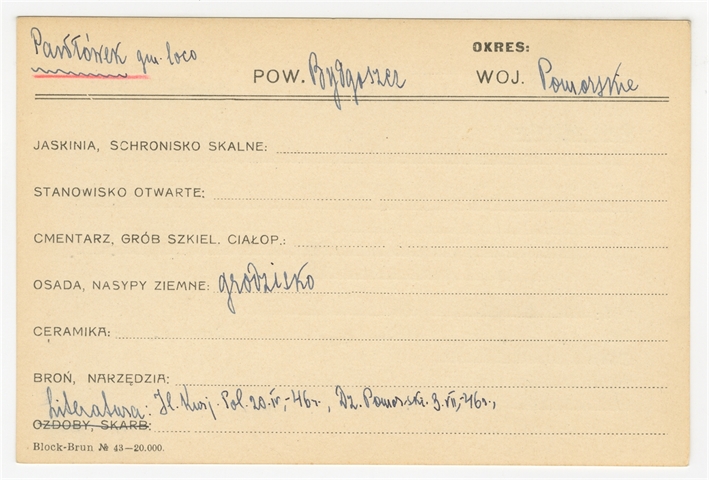 Pawłówek gm. loco
OKRES:
POW. Bydgoszcz WOJ. Pomorskie
JASKINIA, SCHRONISKO SKALNE:
STANOWISKO OTWARTE:
CMENTARZ, GRÓB SZKIEL. CIAŁOP.:
OSADA, NASYPY ZIEMNE: grodzisko
CERAMIKA:
BROŃ, NARZĘDZIA:
Literatura: Il. Kurj. Pol. 20.IV.-46r., Dz. Pomorski 3.VII.-46r.,
OZDOBY, SKARB:
Block-Brun № 43—20.000.